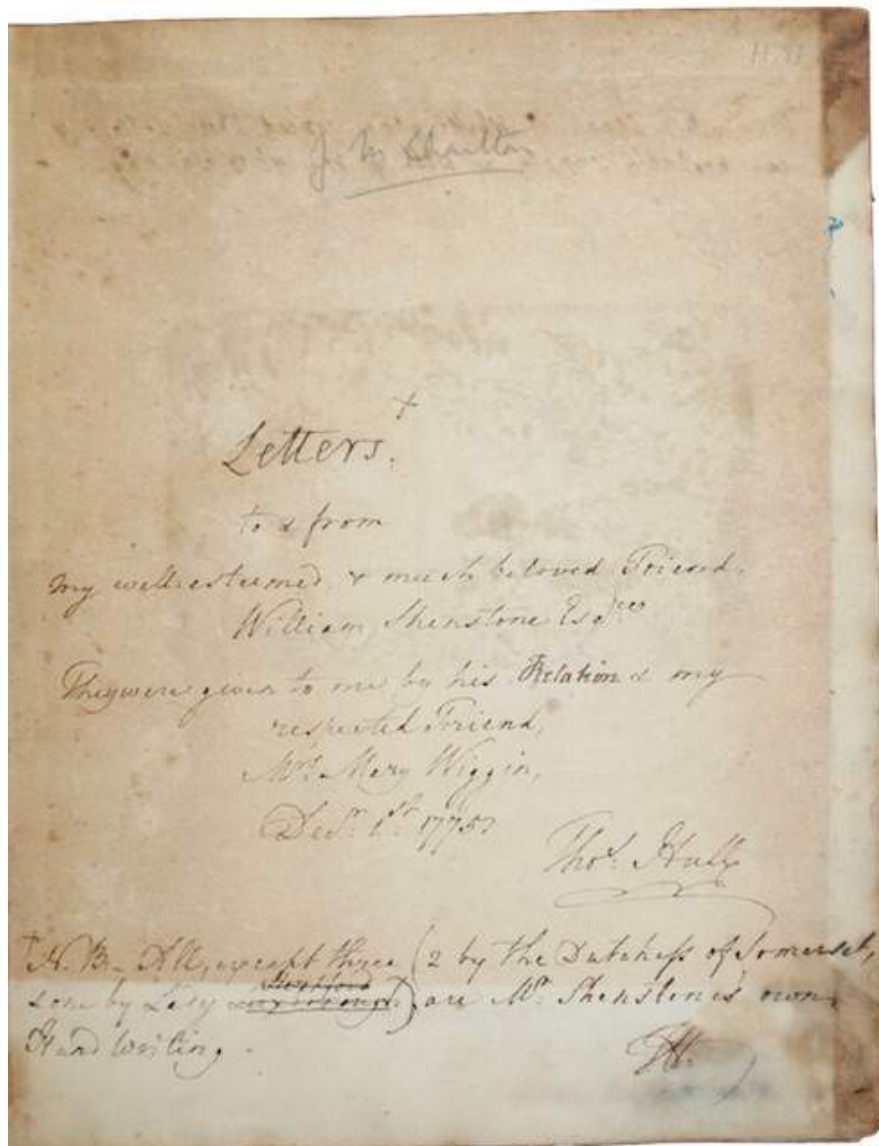 Letters. +
to & from
my well-esteemed, & much beloved Friend,
William Shenstone Esqre
They were given to me by his Relation & my
respected Friend,
Mrs. Mary Wiggin,
Decr. 1st. 1775
Thos. Hull
† N.B. All, except three (2 by the Dutchess of Somerset,
& one by Lady) are Mr. Shenstone's own
Hand Writing.
TH.